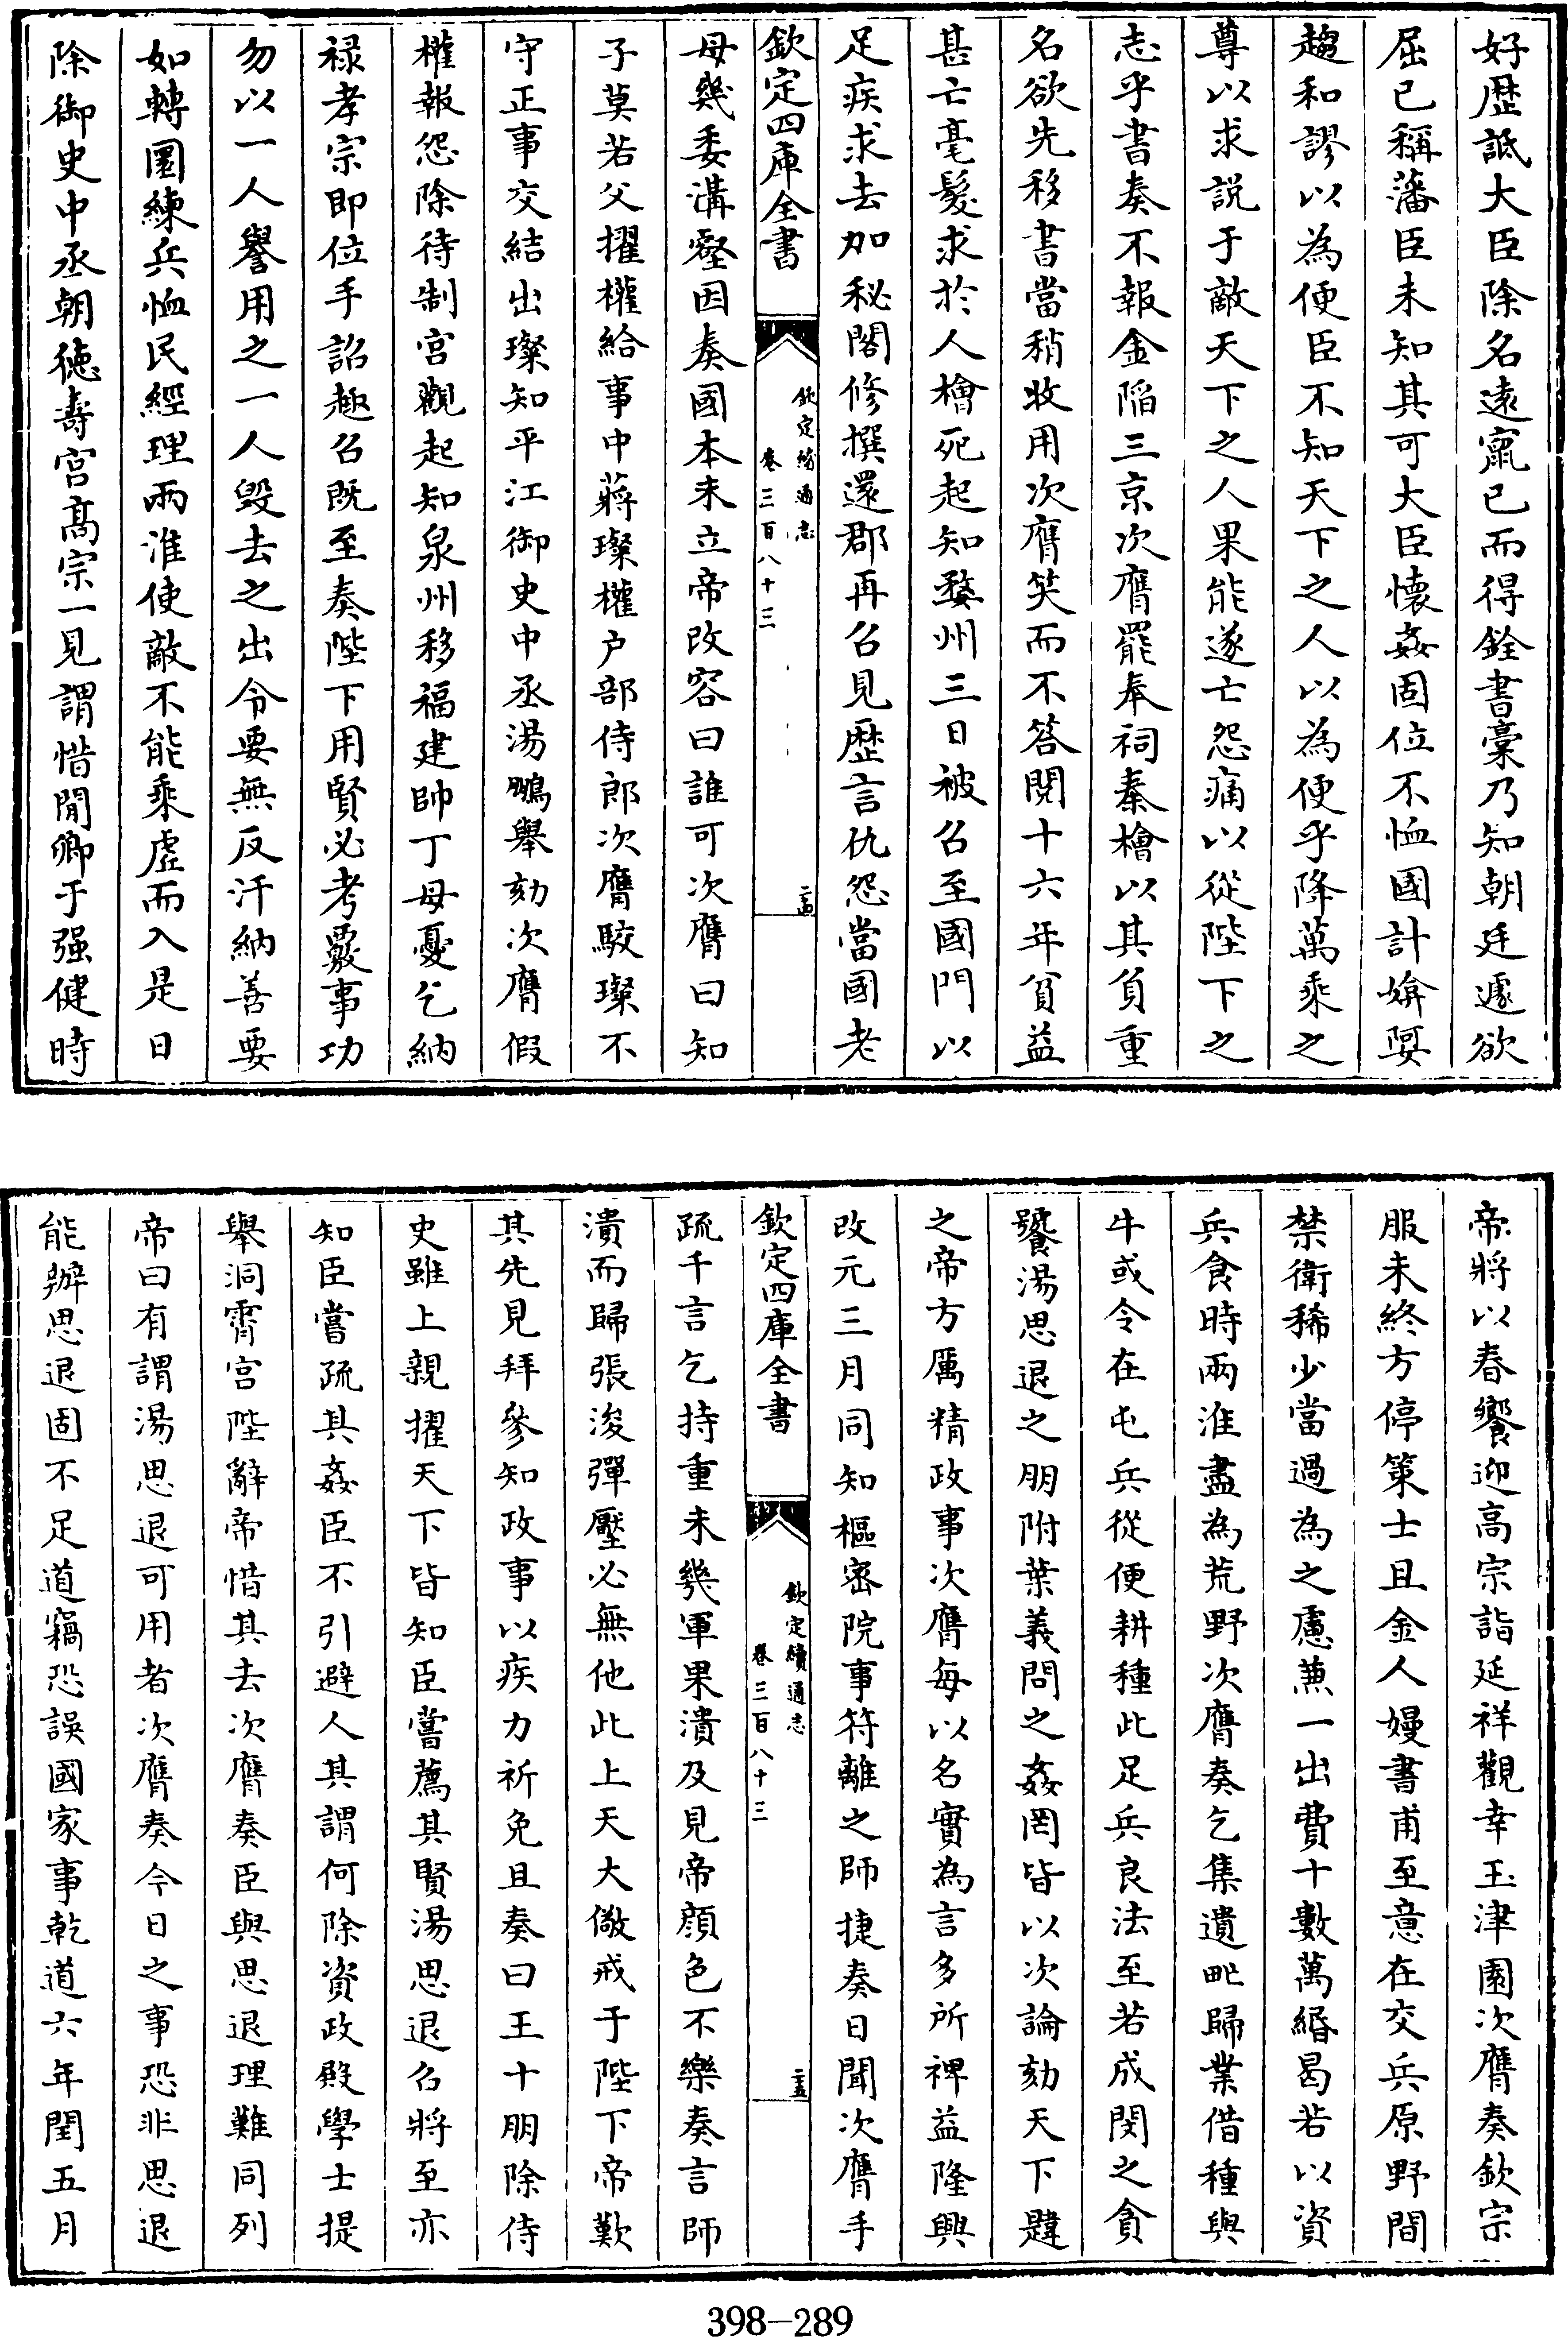 好歴詆大臣除名逺竄已而得銓書藁乃知朝廷遽欲
屈已稱藩臣未知其可大臣懷姦固位不恤國計媕娿
趨和謬以為便臣不知天下之人以為便乎降萬乘之
尊以求説于敵天下之人果能遂亡怨痛以從陛下之
志乎書奏不報金陷三京次膺罷奉祠秦檜以其負重
名欲先移書當稍收用次膺笑而不答閱十六年貧益
甚亡毫髮求於人檜死起知婺州三日被召至國門以
足疾求去加秘閣修撰還郡再召見歴言仇怨當國老
欽定四庫全書
欽定續通志
卷三百八十三
母幾委溝壑因奏國本未立帝改容曰誰可次膺曰知
子莫若父擢權給事中蔣璨權户部侍郎次膺駮璨不
守正事交結出璨知平江御史中丞湯鵬舉劾次膺假
權報怨除待制宫觀起知泉州移福建帥丁母憂乞納
禄孝宗即位手詔趣召既至奏陛下用賢必考覈事功
勿以一人譽用之一人毁去之出令要無反汗納善要
如轉圜練兵恤民經理兩淮使敵不能乘虚而入是日
除御史中丞朝徳壽宫髙宗一見謂惜閒卿于强健時
帝將以春饗迎高宗詣延祥觀幸玉津園次膺奏欽宗
服未終方停策士且金人嫚書甫至意在交兵原野間
禁衛稀少當過為之慮兼一出費十數萬緡曷若以資
兵食時兩淮盡為荒野次膺奏乞集遺甿歸業借種與
牛或令在屯兵從便耕種此足兵良法至若成閔之貪
饕湯思退之朋附葉義問之姦罔皆以次論劾天下韙
之帝方厲精政事次膺每以名實為言多所裨益隆興
改元三月同知樞密院事符離之師捷奏日聞次膺手
欽定四庫全書
欽定續通志
卷三百八十三
疏千言乞持重未幾軍果潰及見帝顔色不樂奏言師
潰而歸張浚彈壓必無他此上天大儆戒于陛下帝歎
其先見拜參知政事以疾力祈免且奏曰王十朋除侍
史雖上親擢天下皆知臣嘗薦其賢湯思退召將至亦
知臣嘗疏其姦臣不引避人其謂何除資政殿學士提
舉洞霄宫陛辭帝惜其去次膺奏臣與思退理難同列
帝曰有謂湯思退可用者次膺奏今日之事恐非思退
能辦思退固不足道竊恐誤國家事乾道六年閏五月
398-289